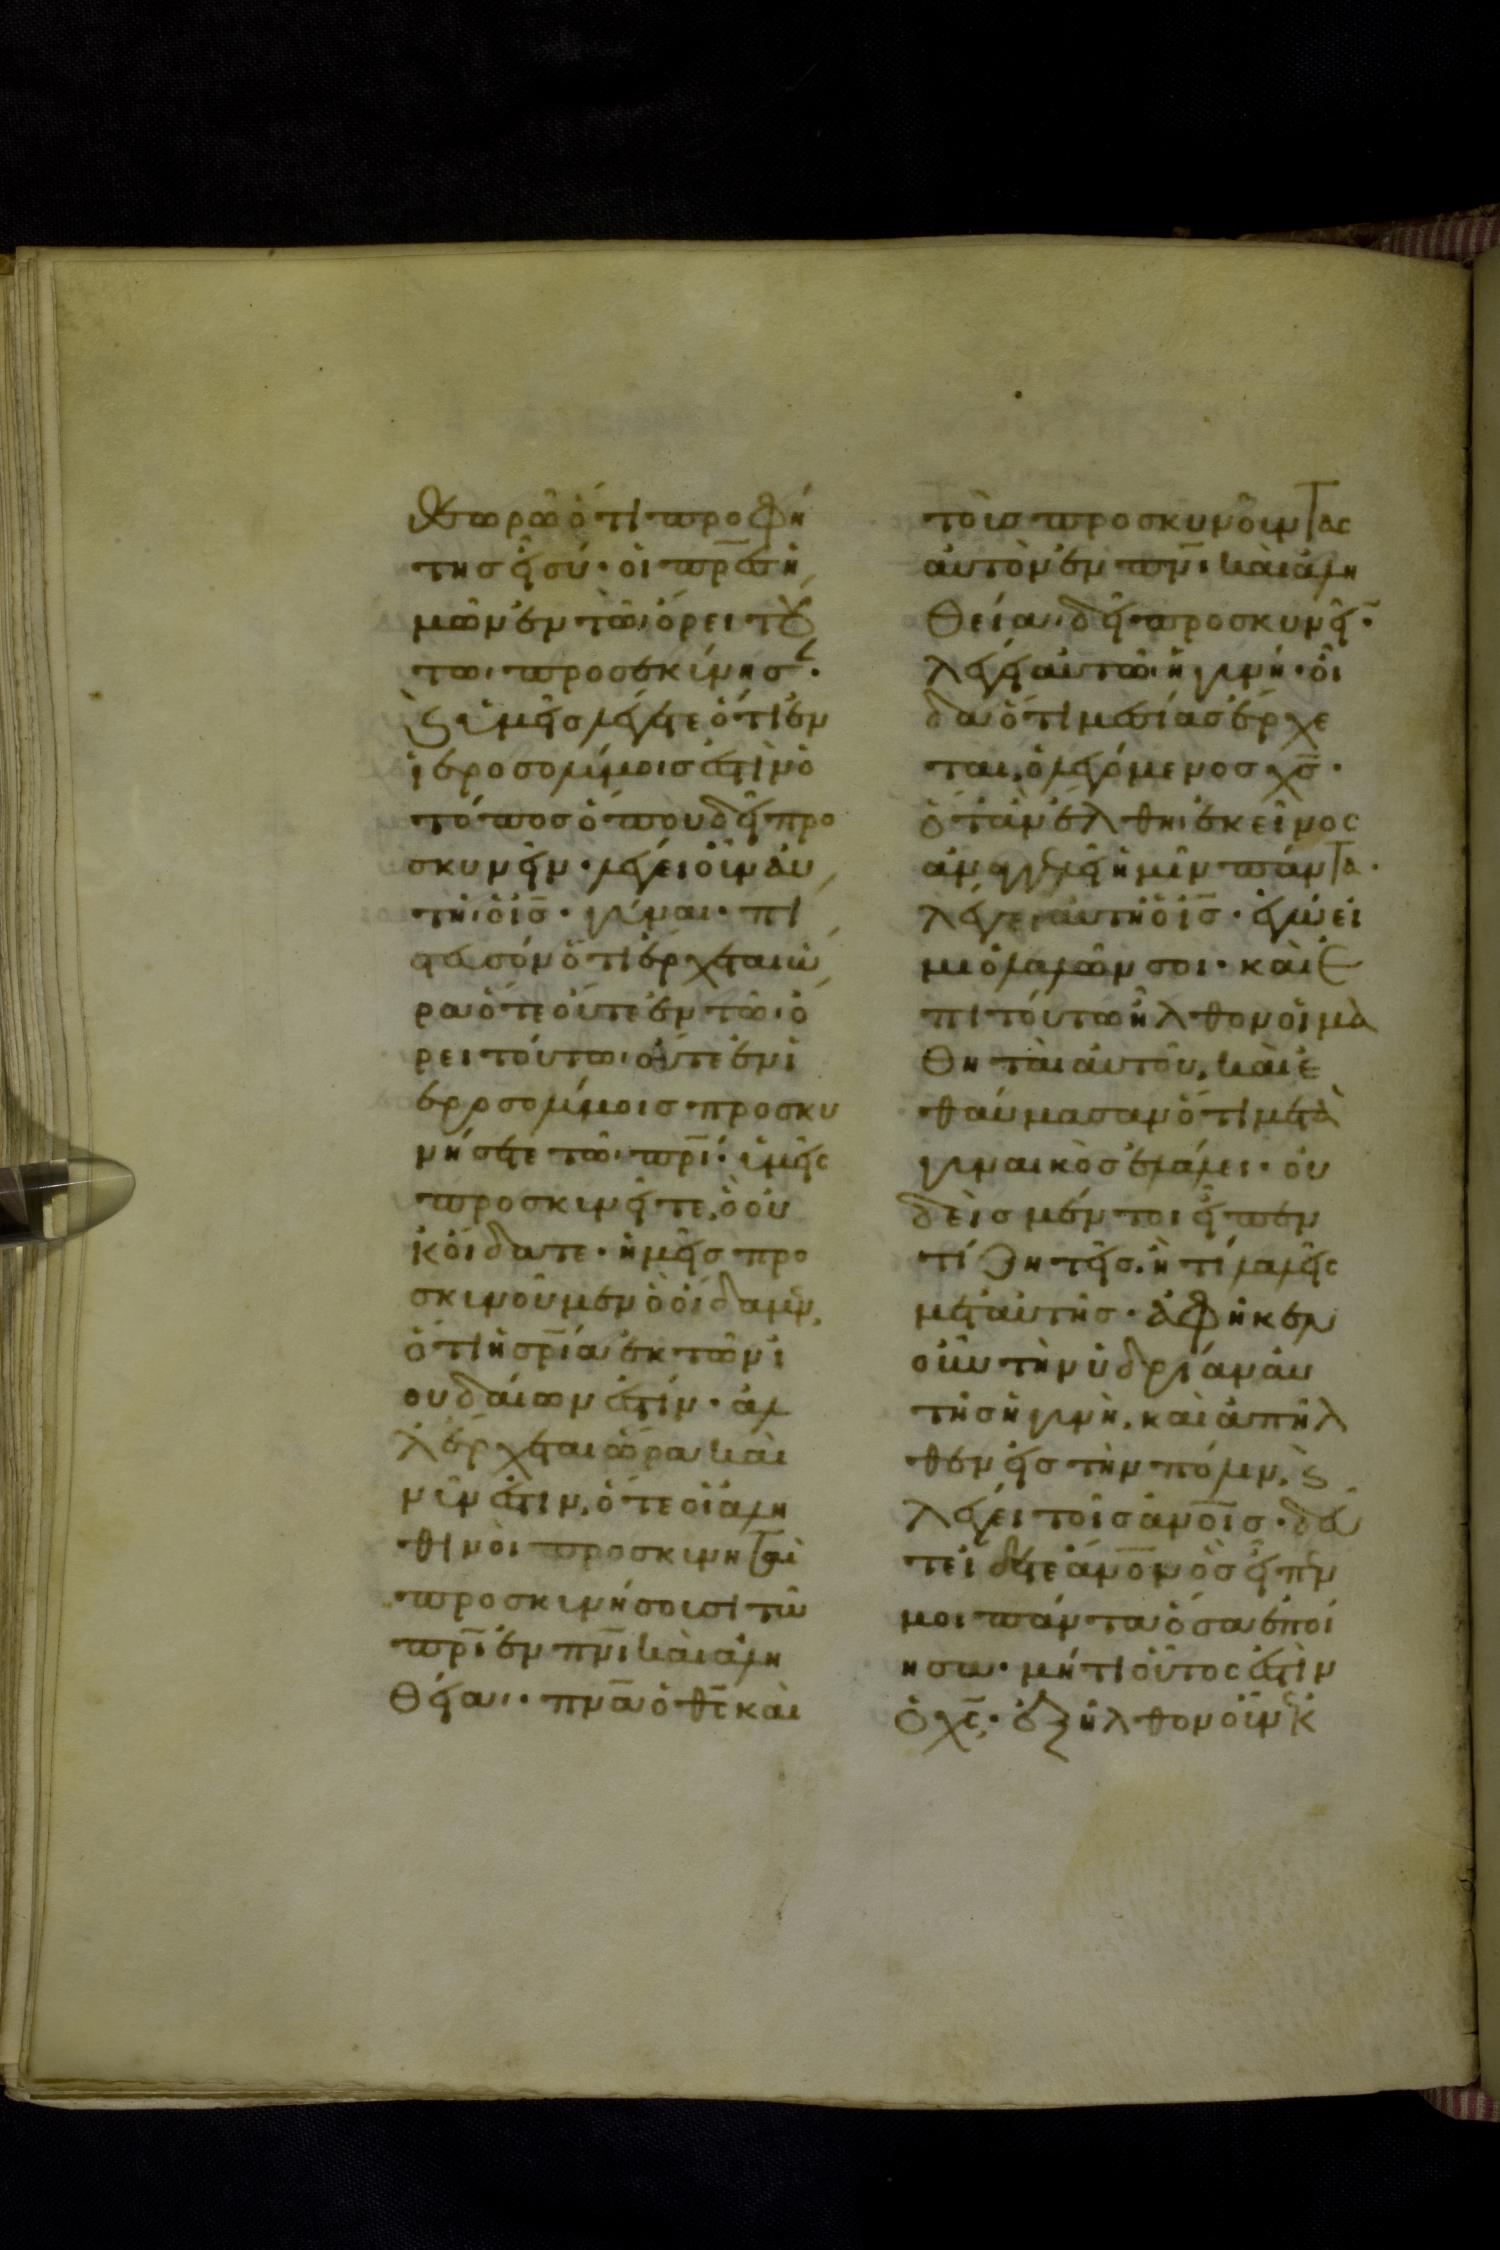 θεωρῶ ὅτι προφή
της εἶ σύ· οἱ πρ̅ες ἡ
μῶν ἐν τῶι ὄρει τού
τωι προσεκύνησ·
ϗ ὑμεῖς λέγετε ὅτι ἐν
ἱεροσολύμοις ἐστὶν ὁ
τόπος ὅπου δεῖ προ
σκυνεῖν· λέγει οὖν αὐ
τῆι ὁ ις̅· γύναι· πί
στευσόν ὅτι ἔρχεται ὥ
ρα ὅτε οὔτε ἐν τῶι ὄ
ρει τούτωι οὔτε ἐν ἱ
εροσολύμοις προσκυ
νήσετε τῶι πρ̅ι· ὑμεῖς
προσκυνεῖτε, ὃ οὐ
κ οἴδατε· ἡμεῖς προ
σκυνοῦμεν ὃ οἴδαμεν,
ὅτι ἡ σρ̅ία ἐκ τῶν ἰ
ουδαίων ἐστίν· ἀλ
λ ἔρχεται ὥρα καὶ
νῦν ἐστιν, ὅτε οἱ ἀλη
θινοὶ προσκυνηταὶ
προσκυνήσουσι τῶ
πρ̅ι ἐν πν̅ι καὶ ἀλη
θείαι· πν̅α ὁ θς̅ καὶ
τοὺς προσκυνοῦντας
αὐτὸν ἐν πν̅ι καὶ ἀλη
θείαι δεῖ προσκυνεῖ̅·
λέγει αὐτῶ ἡ γυνή· οἶ
δα ὅτι μεσίας ἔρχε
ται, ὁ λεγόμενος χς̅·
ὅταν ἔλθηι ἐκεῖνος
ἀναγγελεῖ ἡμῖν πάντα·
λέγει αὐτῆ ὁ ις̅· ἐγώ εἰ
μι ὁ λαλῶν σοι· καὶ ἐ
πὶ τούτω ἦλθον οἱ μα
θηταὶ αὐτοῦ, καὶ ἐ
θαύμασαν ὅτι μετὰ
γυναικὸς ἐλάλει· οὐ
δεὶς μέντοι εἶπεν
τί ζητεῖς, ἢ τί λαλεῖς
μετ αὐτῆς· ἀφῆκεν
οὖν τὴν ὑδρίαν αὐ
τῆς ἡ γυνὴ, καὶ ἀπῆλ
θεν εἰς τὴν πόλιν, ϗ
λέγει τοῖς αν̅οις· δεῦ
τε ἴδετε αν̅ον ὃς εἶπέν
μοι πάντα ὅσα ἐποί
ησα· μήτι οὗτος ἐστὶν
ὁ χς̅, ἐξῆλθον οὖν ἐκ